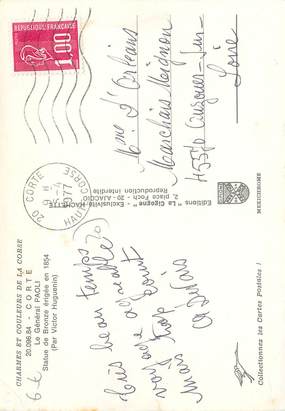 CHARMES ET COULEURS DE LA CORSE
20.096.84 - CORTE
Le Général PAOLI
Statue de Bronze érigée en 1854
(Par Victor Huguenin)
très beau temps
voyage agréable
mais trop court
Editions "La Cigogne" - Exclusivité HACHETTE
2, place Foch - 20 - AJACCIO
Reproduction interdite
REPUBLIQUE FRANÇAISE
1,00
20 CORTE
HAUTE CORSE
Mme d'Orléans
Marchais Mignon
45570 Ouzouer-sur-
Loire
MEXICHROME
Collectionnez les Cartes Postales !